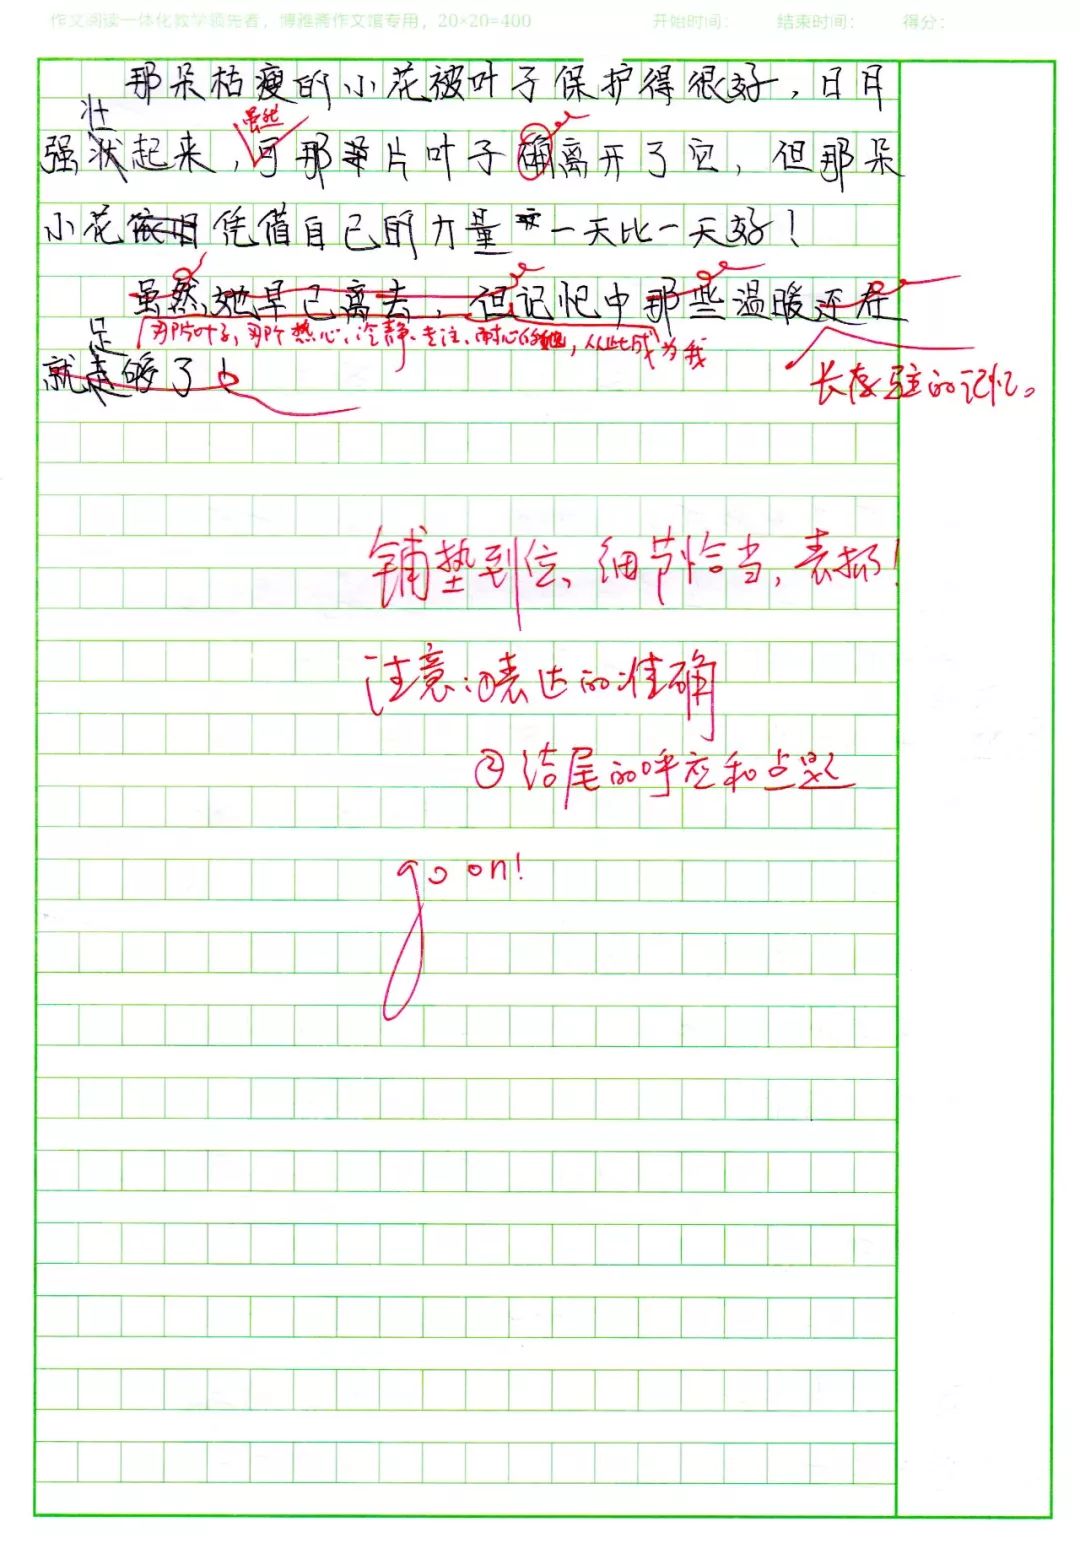 作文阅读一体化教学领先者，博雅斋作文馆专用，20×20=400 开始时间： 结束时间： 得分：
那朵枯瘦的小花被叶子保护得很好，日月
壮
虽然
强状起来，可那片叶子确离开了它，但那朵
小花依旧凭借自己的力量一天比一天好！
虽然她早已离去，但记忆中那些温暖还在
那片叶子，那个热心、冷静、专注、耐心的她，从此成为我
足
就走够了！
长存驻的记忆。
铺垫到位、细节恰当，表扬！
注意：①表达的准确
②结尾的呼应和点题
go on!